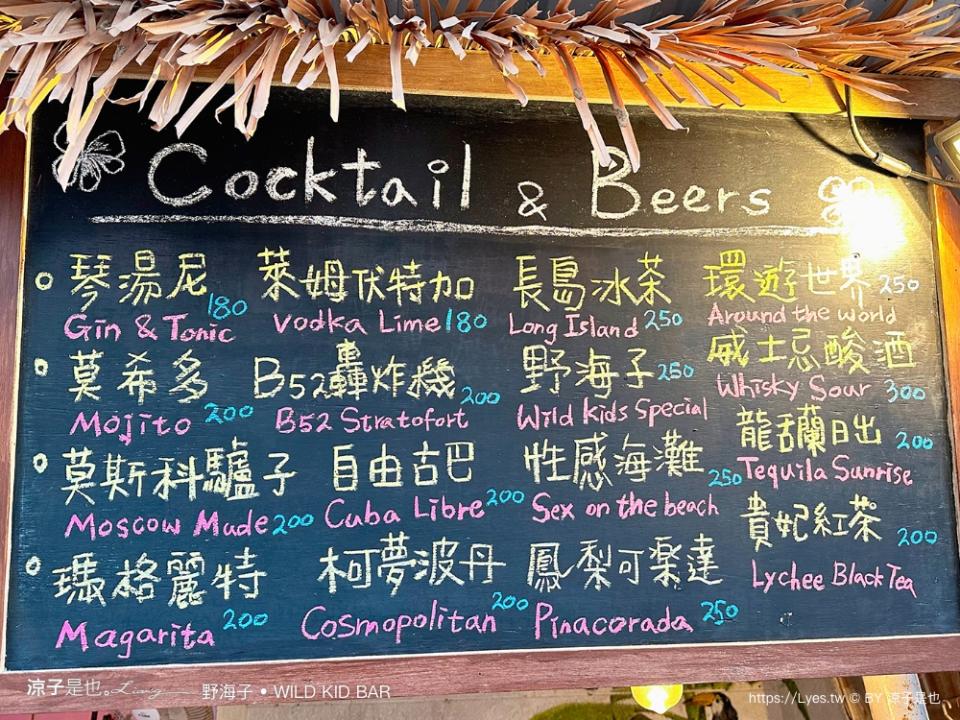 Cocktail & Beers
琴湯尼 180 萊姆伏特加 長島冰茶 環遊世界 250
Gin & Tonic Vodka Lime 180 Long Island 250 Around the world
莫希多 B52轟炸機 200 野海子 250 威士忌酸酒
Mojito 200 B52 Stratofort Wild kids Special Whisky Sour 300
莫斯科驢子 自由古巴 性感海灘 250 龍舌蘭日出 200
Moscow Mude 200 Cuba Libre 200 Sex on the beach Tequila Sunrise
瑪格麗特 柯夢波丹 200 鳳梨可樂達 貴妃紅茶 200
Magarita 200 Cosmopolitan Pinacorada 250 Lychee Black Tea
凉子是也。 野海子 • WILD KID BAR
https://Lyes.tw © BY 凉子是也